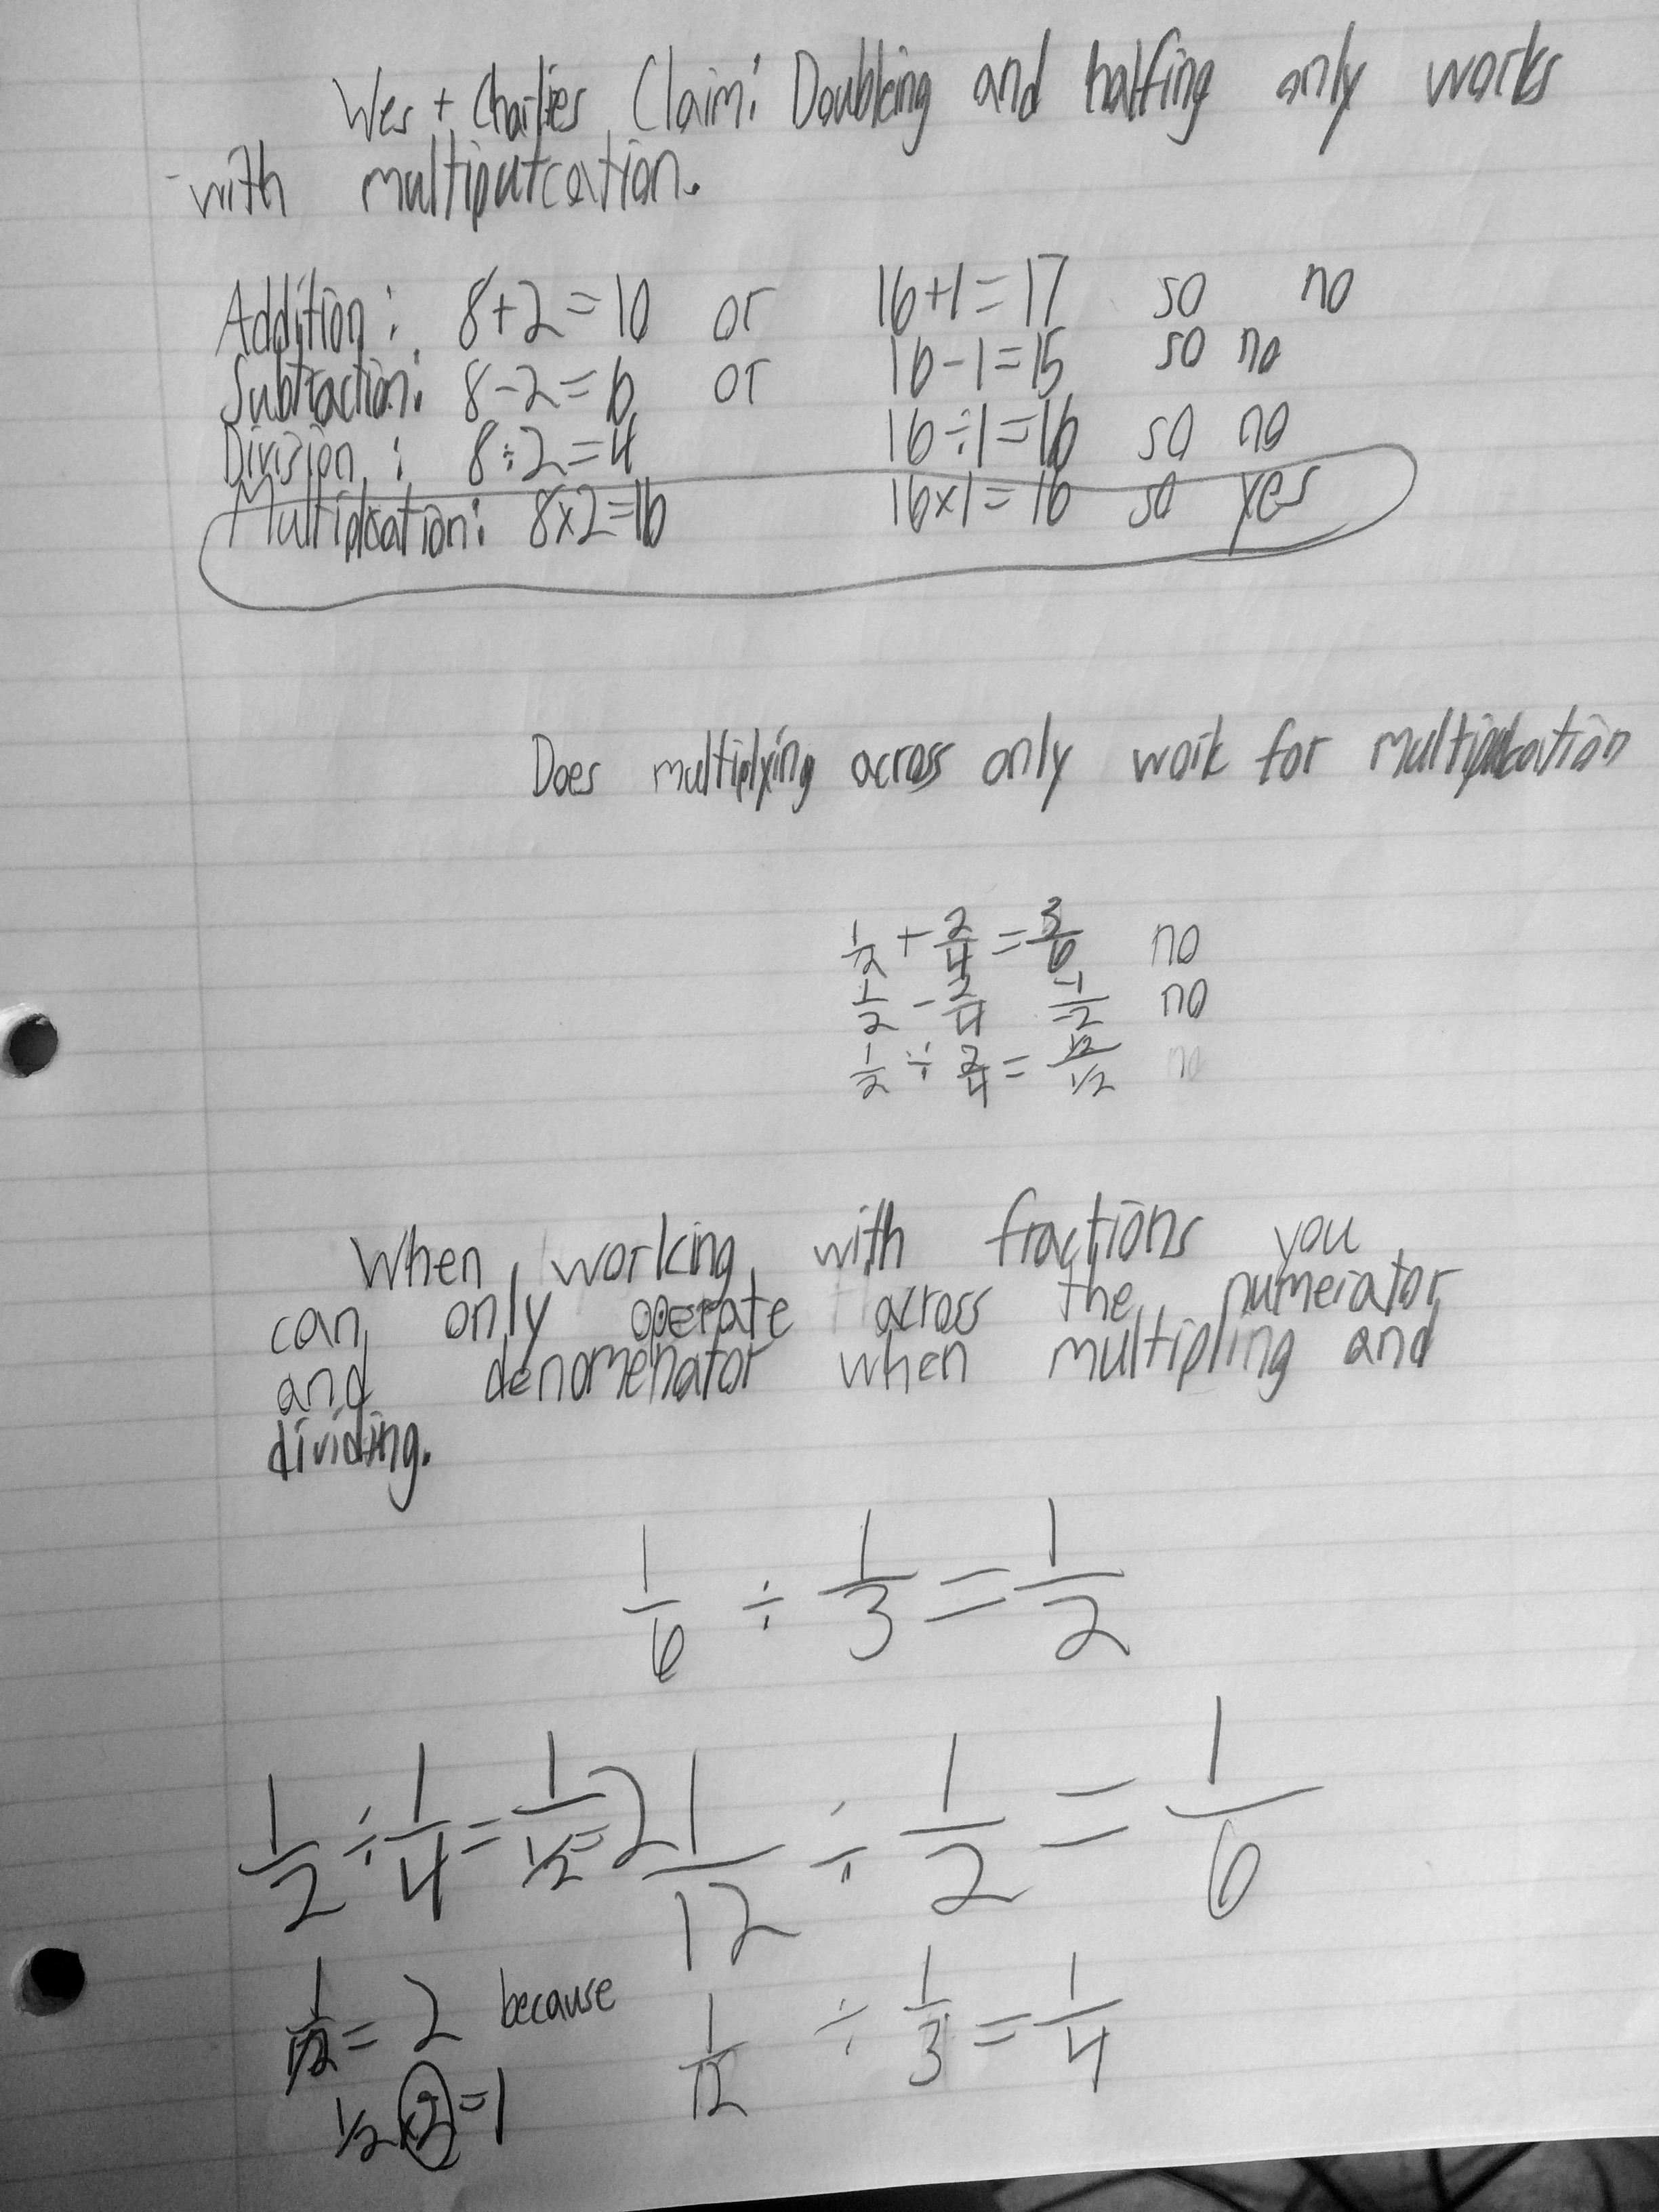 Wes + Charlies Claim: Doubling and halfing only works
with multiplication.
Addition: 8+2=10 or 16+1=17 so no
Subtraction: 8-2=6 or 16-1=15 so no
Division: 8÷2=4 16÷1=16 so no
Multiplication: 8×2=16 16×1=16 so yes
Does multiplying across only work for multiplication
1/2 + 2/4 = 3/6 no
1/2 - 2/4 -1/-2 no
1/2 ÷ 2/4 = 1/2/1/2 no
When working with fractions you
can only operate across the numerator
and denomenator when multipling and
dividing.
1/6 ÷ 1/3 = 1/2
1/2 ÷ 1/4 = 1/1/2 = 2
1/12 ÷ 1/2 = 1/6
1/1/2 = 2 because
1/2 × 2 = 1
1/12 ÷ 1/3 = 1/4